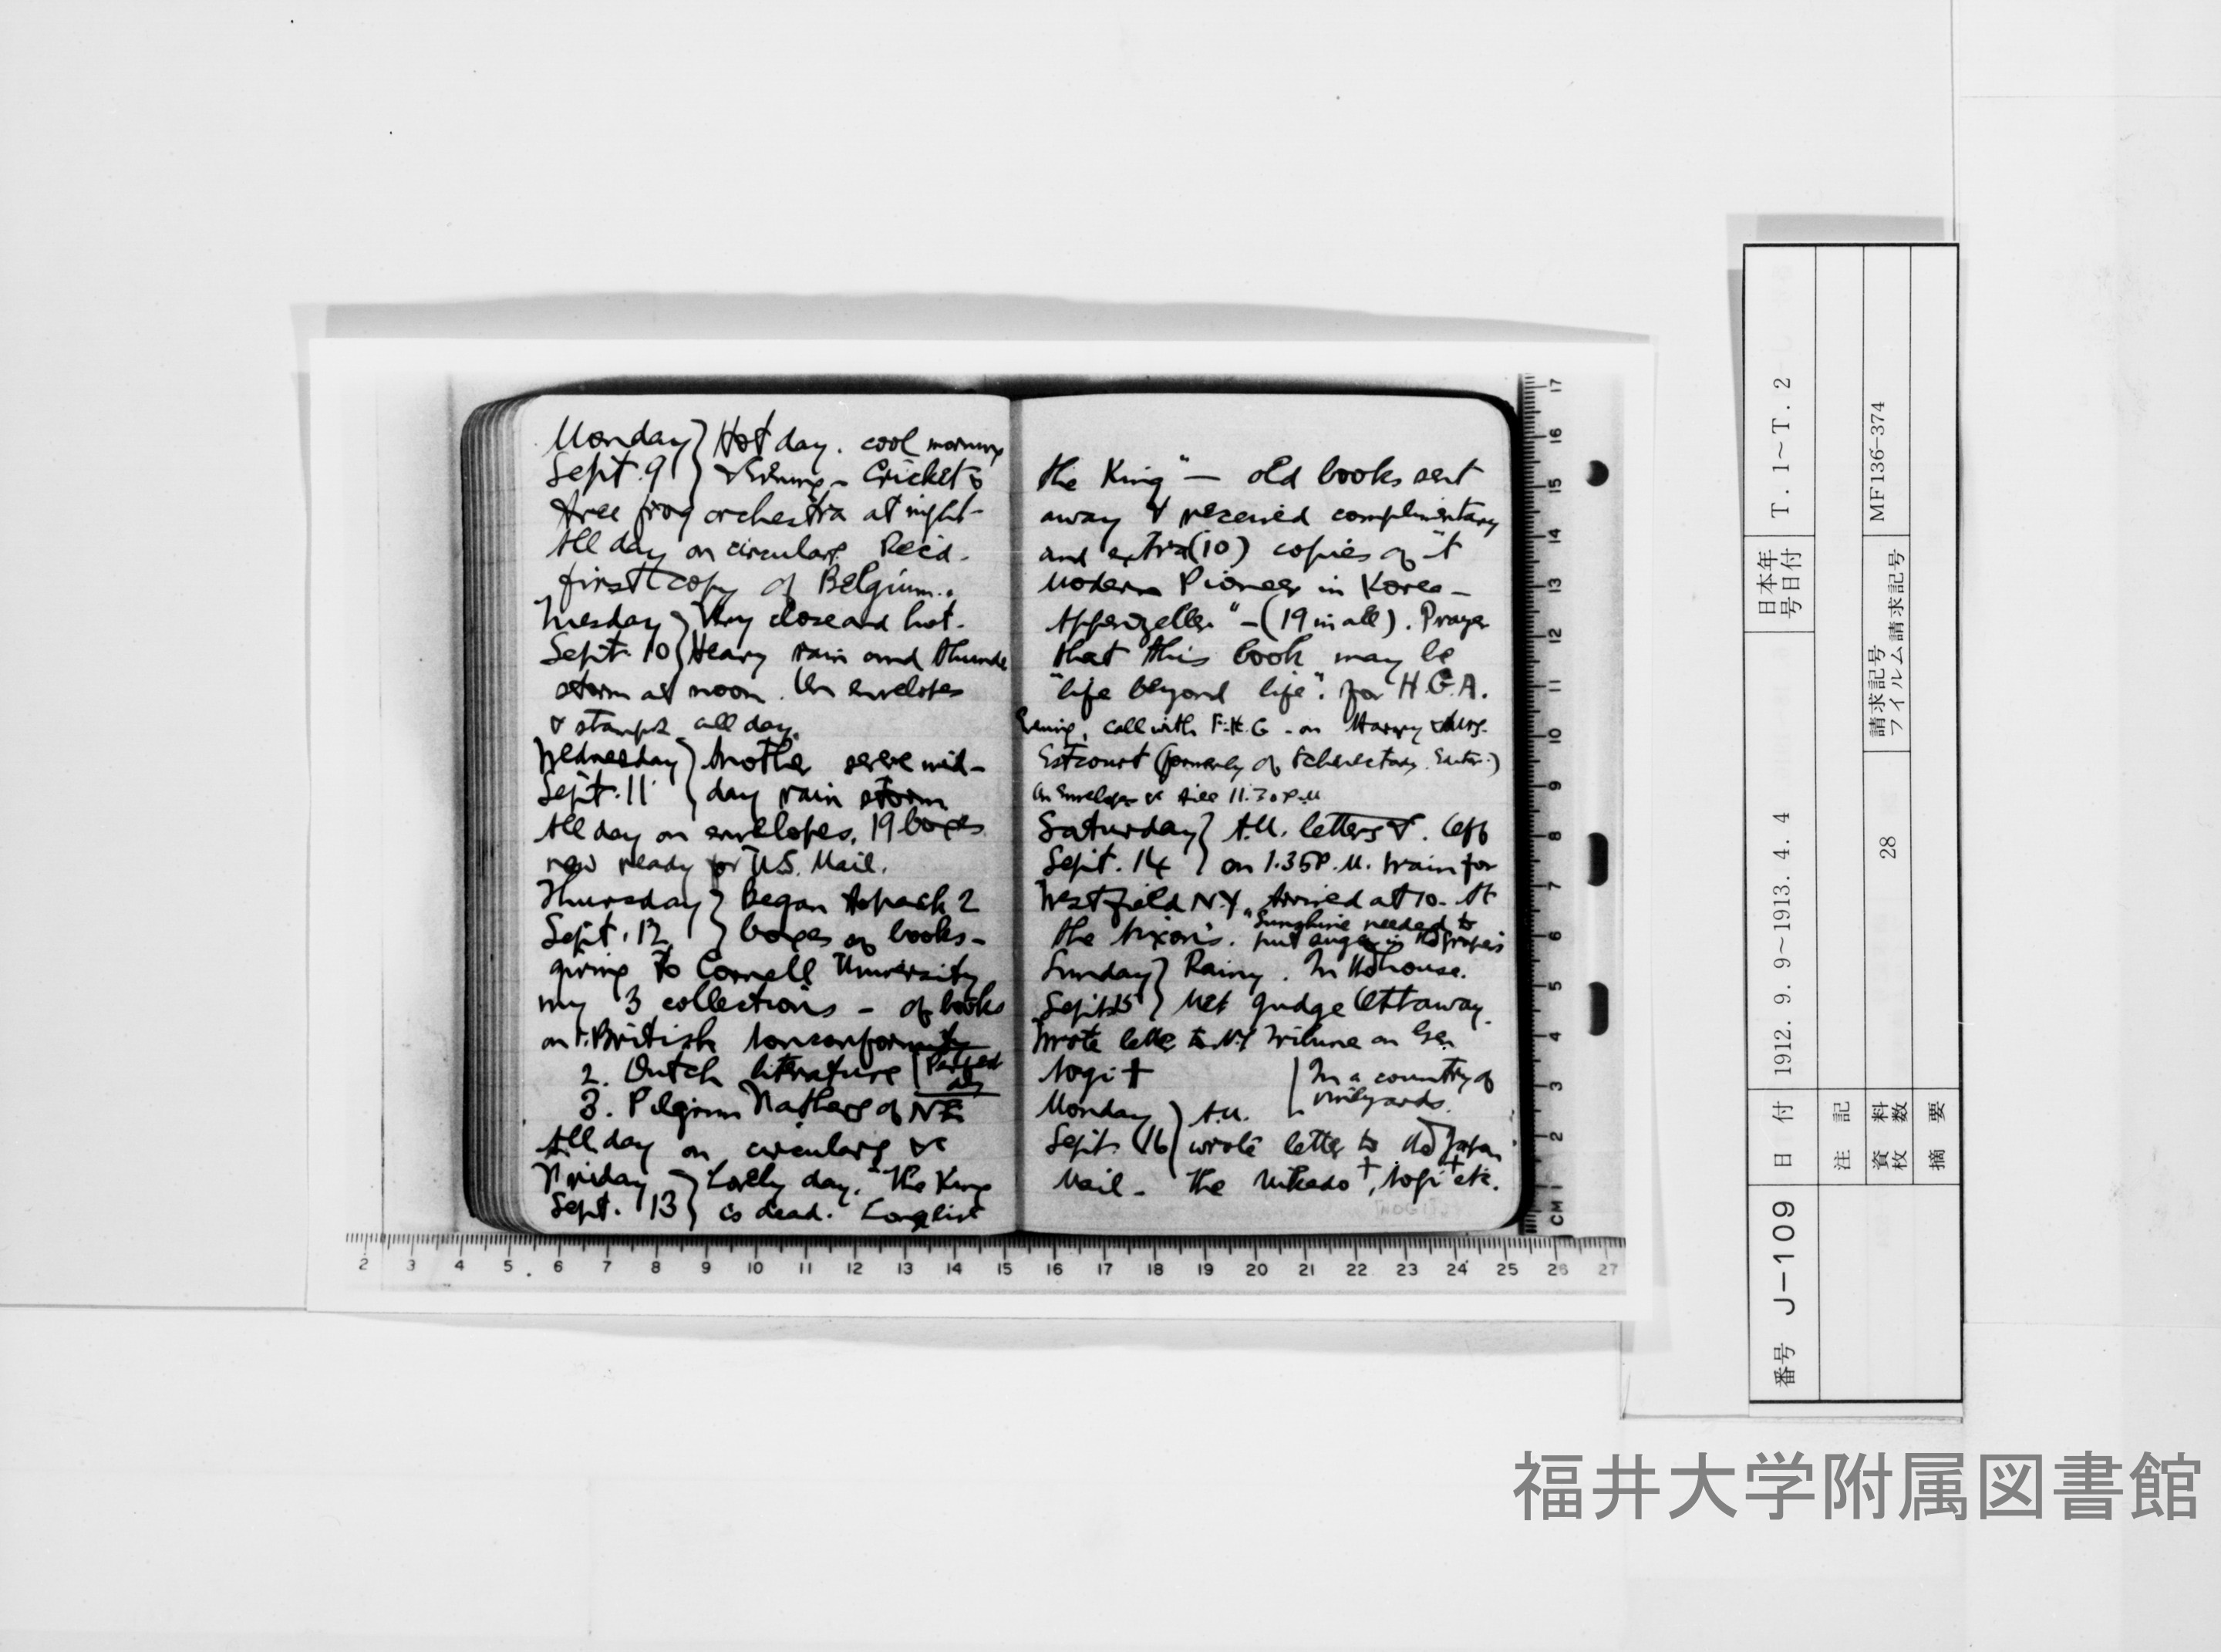 Monday } Hot day. cool morning
Sept. 9 } & evening – Crickets &
tree frog orchestra at night –
All day on circulars. Rec'd.
first copy of Belgium.
Tuesday } Very close and hot.
Sept. 10 } Heavy rain and thunder
storm at noon. On envelopes
& stamps all day.
Wednesday } Another severe mid-
Sept. 11 } day rain storm
All day on envelopes. 19 boxes
now ready for U.S. Mail.
Thursday } Began to pack 2
Sept. 12 } boxes of books –
giving to Cornell University
my 3 collections – of books
on 1. British Nonconformity
2. Dutch literature
3. Pilgrim Fathers of NE
All day on circulars &c
Friday } Lovely day. "The King
Sept. 13 } is dead." "Long live
the King" — old books sent
away & received complimentary
and extra (10) copies of "A
Modern Pioneer in Korea –
Appenzeller" – (19 in all). Prayer
that this book may be
"life beyond life". for H.G.A.
Evening, call with F.K.G. – on Harry & Mrs.
Estcourt (formerly of Schenectady)
On envelopes &c till 11.30 P.M
Saturday } A.M. letters &. Left
Sept. 14 } on 1.35 P.M. train for
Westfield N.Y. Arrived at 10. At
the Nixon's. "Sunshine needed to
put sugar in the grapes
Sunday } Rainy. In the house.
Sept 15 } Met Judge Ottaway.
Wrote letter to N.Y Tribune on Gen
Nogi † | In a country of
vineyards.
Monday } A.M.
Sept. 16 } wrote letter to the Japan
Mail – The Mikado †, Nogi † etc.
[NOGI]
2 3 4 5 6 7 8 9 10 11 12 13 14 15 16 17 18 19 20 21 22 23 24 25 26 27
CM 1 2 3 4 5 6 7 8 9 10 11 12 13 14 15 16 17
番号 J-109 日付 1912. 9. 9~1913. 4. 4 日本年号日付 T. 1~T. 2
注記
資料枚数 28 請求記号 フィルム請求記号 MF136-374
摘要
福井大学附属図書館